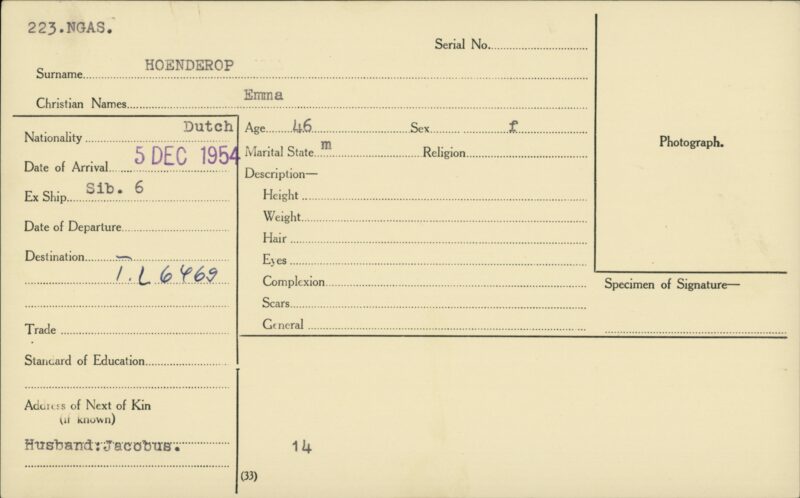 223.NGAS.
Serial No.
Surname HOENDEROP
Christian Names Emma
Nationality Dutch
Date of Arrival 5 DEC 1954
Ex Ship Sib. 6
Date of Departure
Destination
I.L 6469
Trade
Standard of Education
Address of Next of Kin
(if known)
Husband:Jacobus.
Age 46 Sex f
Marital State m Religion
Description—
Height
Weight
Hair
Eyes
Complexion
Scars
General
14
(33)
Photograph.
Specimen of Signature—